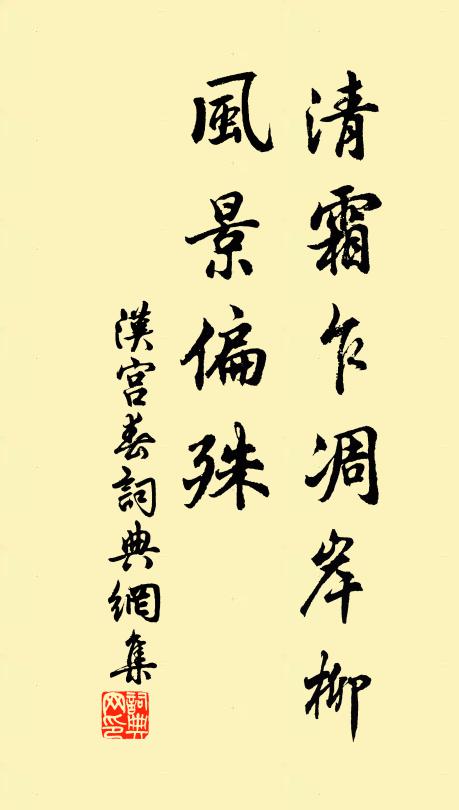 清霜乍凋岸柳
風景偏殊
漢宮春詞典網集
詞典網印